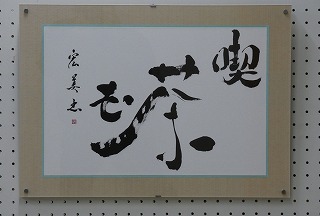 喫茶去
宏美